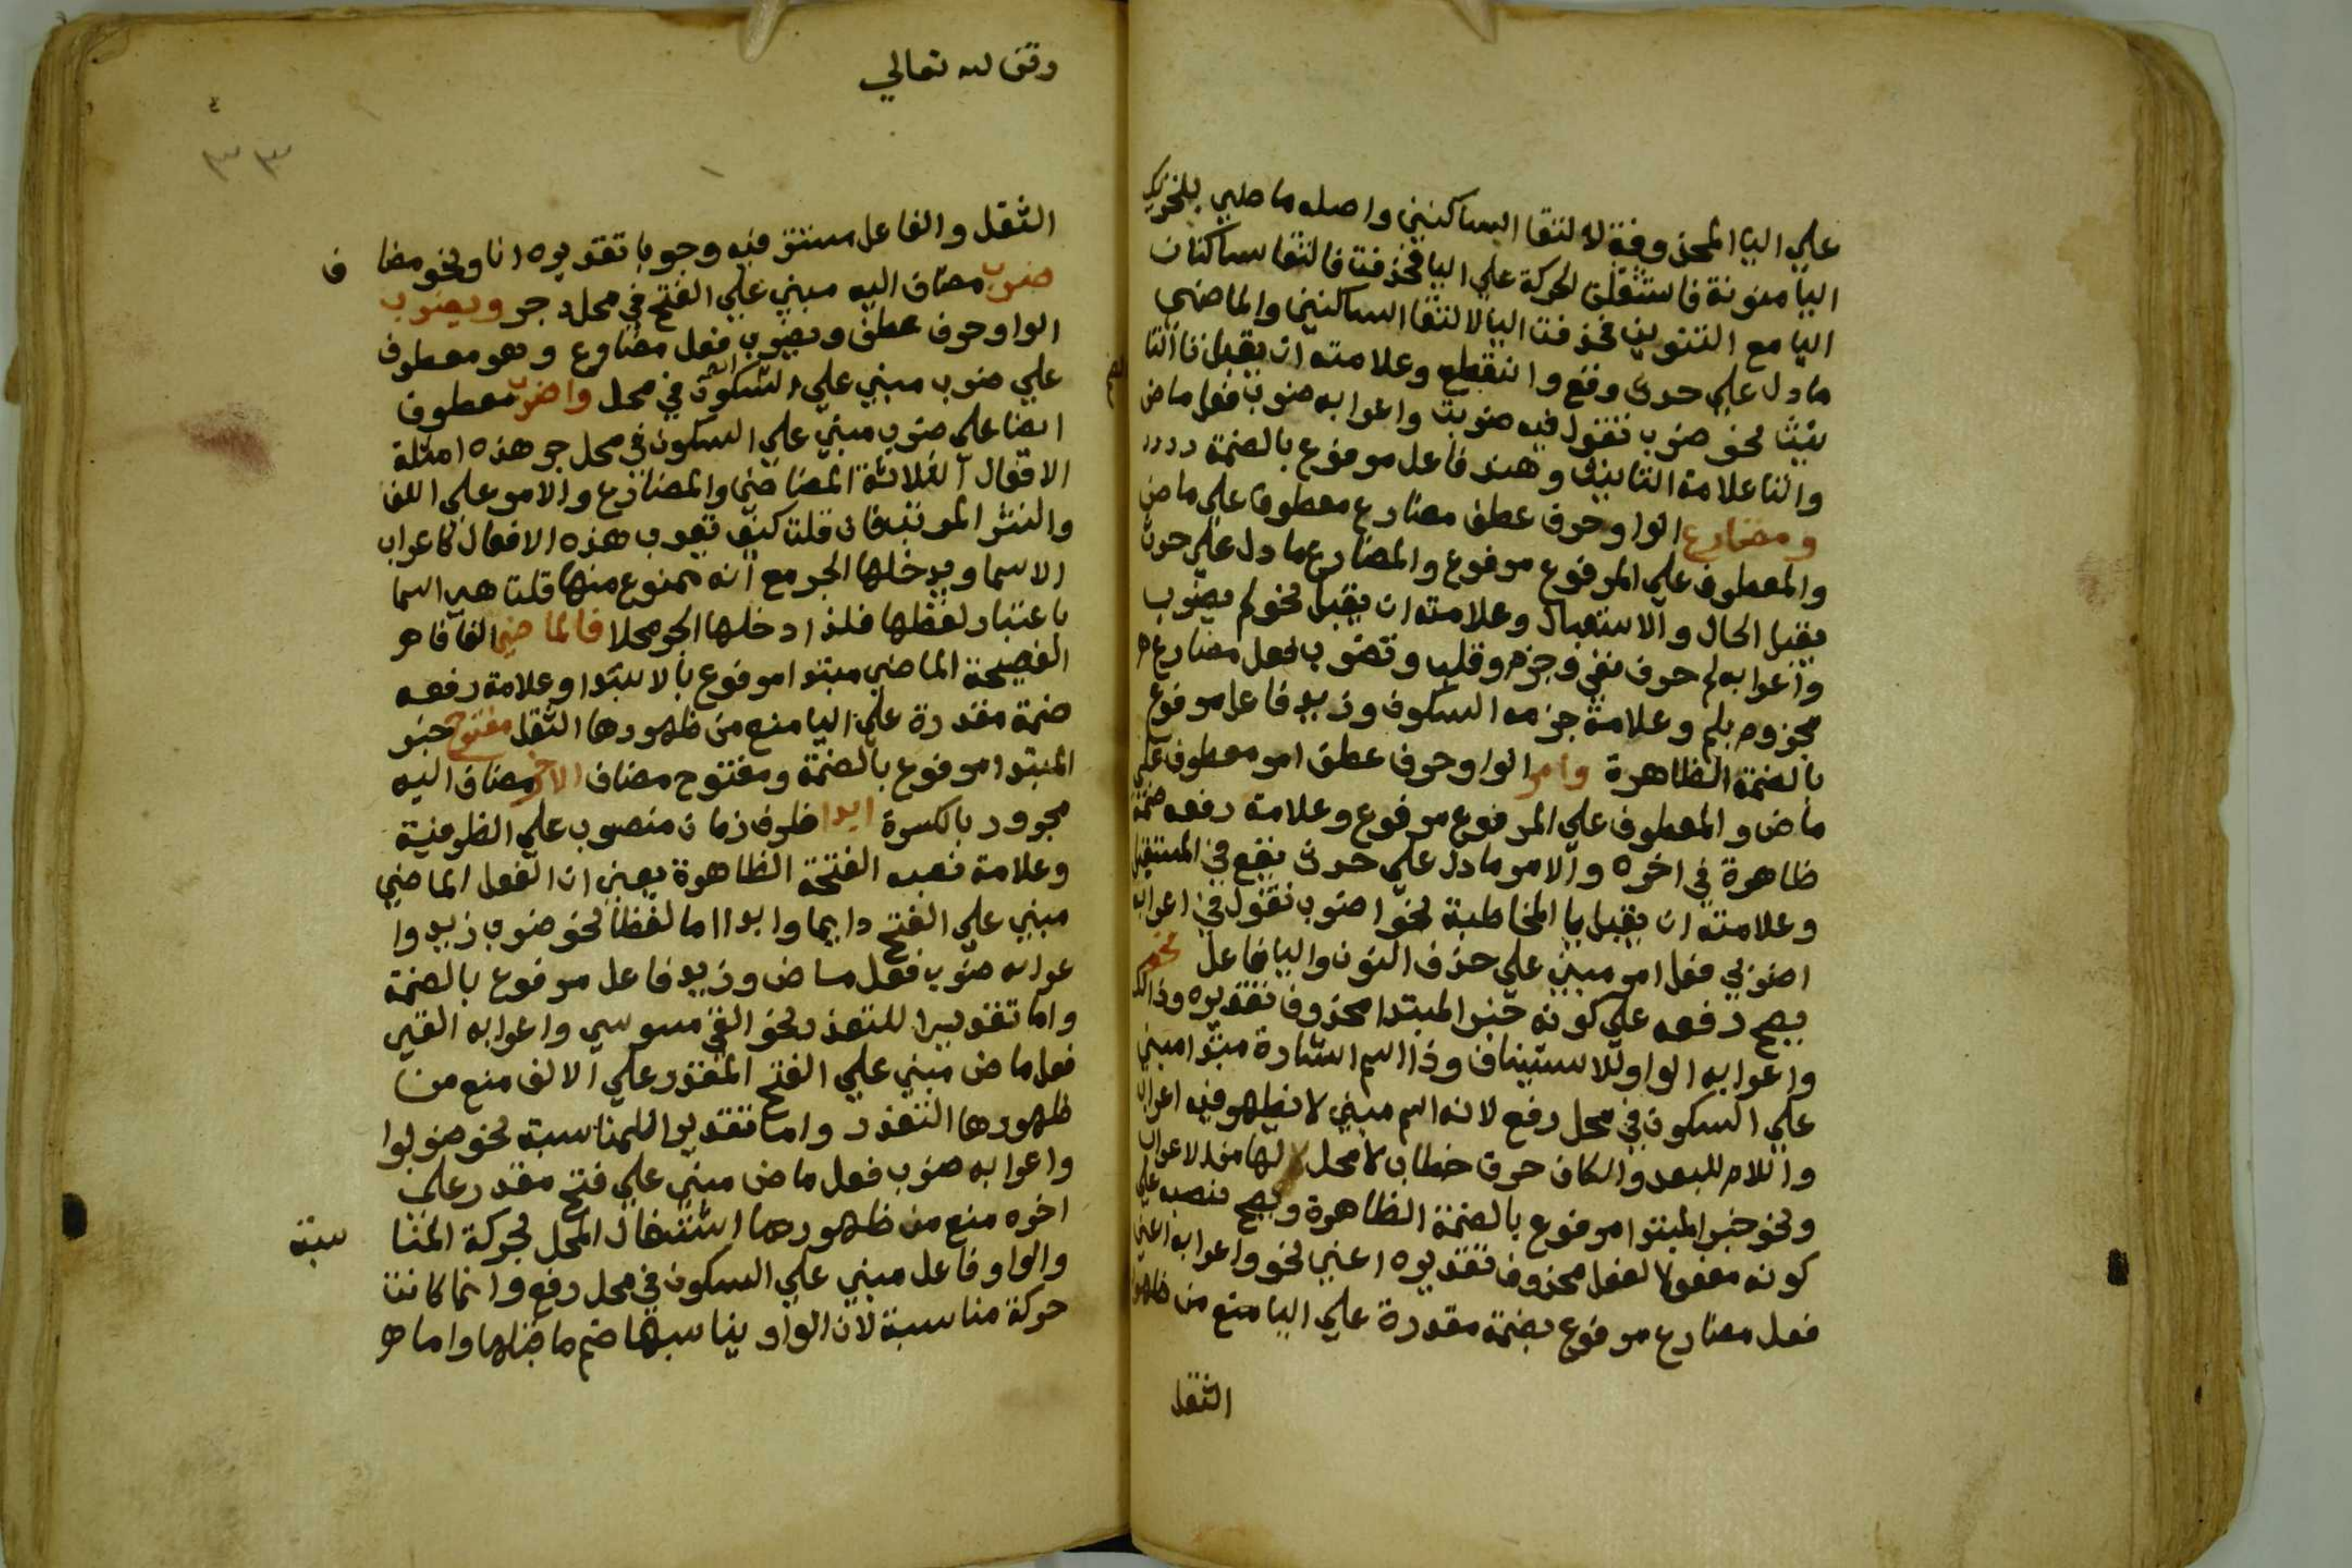 علي اليا المحذوفة لالتقا الساكنين واصله ماضي بتحريك
اليا منونة فاستثقلت الحركة علي اليا فحذفت فالتقا ساكنان
اليا مع التنوين فحذفت اليا لالتقا الساكنين والماضي
ما دل علي حدث وقع وانقطع وعلامته ان يقبل تا التا
نيث نحو ضرب تقول فيه ضربت واعرابه ضرب فعل ماض
والتا علامة التانيث وهند فاعل مرفوع بالضمة
ومضارع الواو حرف عطف مضارع معطوف علي ماض
والمعطوف علي المرفوع مرفوع والمضارع ما دل علي حدث
يقبل الحال والاستقبال وعلامته ان يقبل نحو لم يضرب
واعرابه لم حرف نفي وجزم وقلب وتضرب فعل مضارع
مجزوم بلم وعلامة جزمه السكون وزيد فاعل مرفوع
بالضمة الظاهرة وامر الواو حرف عطف امر معطوف علي
ماض والمعطوف علي المرفوع مرفوع وعلامة رفعه ضمة
ظاهرة في اخره والامر ما دل علي حدث يقع في المستقبل
وعلامته ان يقبل يا المخاطبة نحو اضرب تقول في اعرابه
اضربي فعل امر مبني علي حذف النون واليا فاعل نحو
يصح رفعه علي كونه خبر المبتدا محذوف تقديره وذالك
واعرابه الواو للاستيناف وذا اسم اشارة مبتدا مبني
علي السكون في محل رفع لانه اسم مبني لا يظهر فيه اعراب
واللام للبعد والكاف حرف خطاب لا محل لها من الاعراب
ونحو خبر المبتدا مرفوع بالضمة الظاهرة ويصح نصبه علي
كونه مفعولا لفعل محذوف تقديره اعني نحو واعرابه اعني
فعل مضارع مرفوع بضمة مقدرة علي اليا منع من ظهورها
الثقل
وقف لله تعالي
٣٣
الثقل والفاعل مستتر فيه وجوبا تقديره انا ونحو مضا ف
ضرب مضاف اليه مبني علي الفتح في محل جر ويضرب
الواو حرف عطف ويضرب فعل مضارع وهو معطوف
علي ضرب مبني علي السكون في محل واضرب معطوف
ايضا علي ضرب مبني علي السكون في محل جر هذه امثلة
الافعال الثلاثة الماضي والمضارع والامر علي اللف
والنشر المرتب فان قلت كيف تعرب هذه الافعال كاعراب
الاسما ويدخلها الجر مع انه ممنوع منها قلت هي اسما
باعتبار لفظها فلذا دخلها الجر محلا فالماضي الفا فا هو
الفصيحة الماضي مبتدا مرفوع بالابتدا وعلامة رفعه
ضمة مقدرة علي اليا منع من ظهورها الثقل مفتوح خبر
المبتدا مرفوع بالضمة ومفتوح مضاف الاخر مضاف اليه
مجرور بالكسرة ابدا ظرف زمان منصوب علي الظرفية
وعلامة نصبه الفتحة الظاهرة يعني ان الفعل الماضي
مبني علي الفتح دايما وابدا اما لفظا نحو ضرب زيد وا
عرابه ضرب فعل ماض وزيد فاعل مرفوع بالضمة
واما تقديرا للتعذر نحو القي موسي واعرابه القي
فعل ماض مبني علي الفتح المقدر علي الالف منع من
ظهورها التعذر واما تقديرا للمناسبة نحو ضربوا
واعرابه ضرب فعل ماض مبني علي فتح مقدر علي
اخره منع من ظهورها اشتغال المحل بحركة المنا سبة
والواو فاعل مبني علي السكون في محل رفع وانما كانت
حركة مناسبة لان الواو يناسبها ضم ما قبلها واما هو